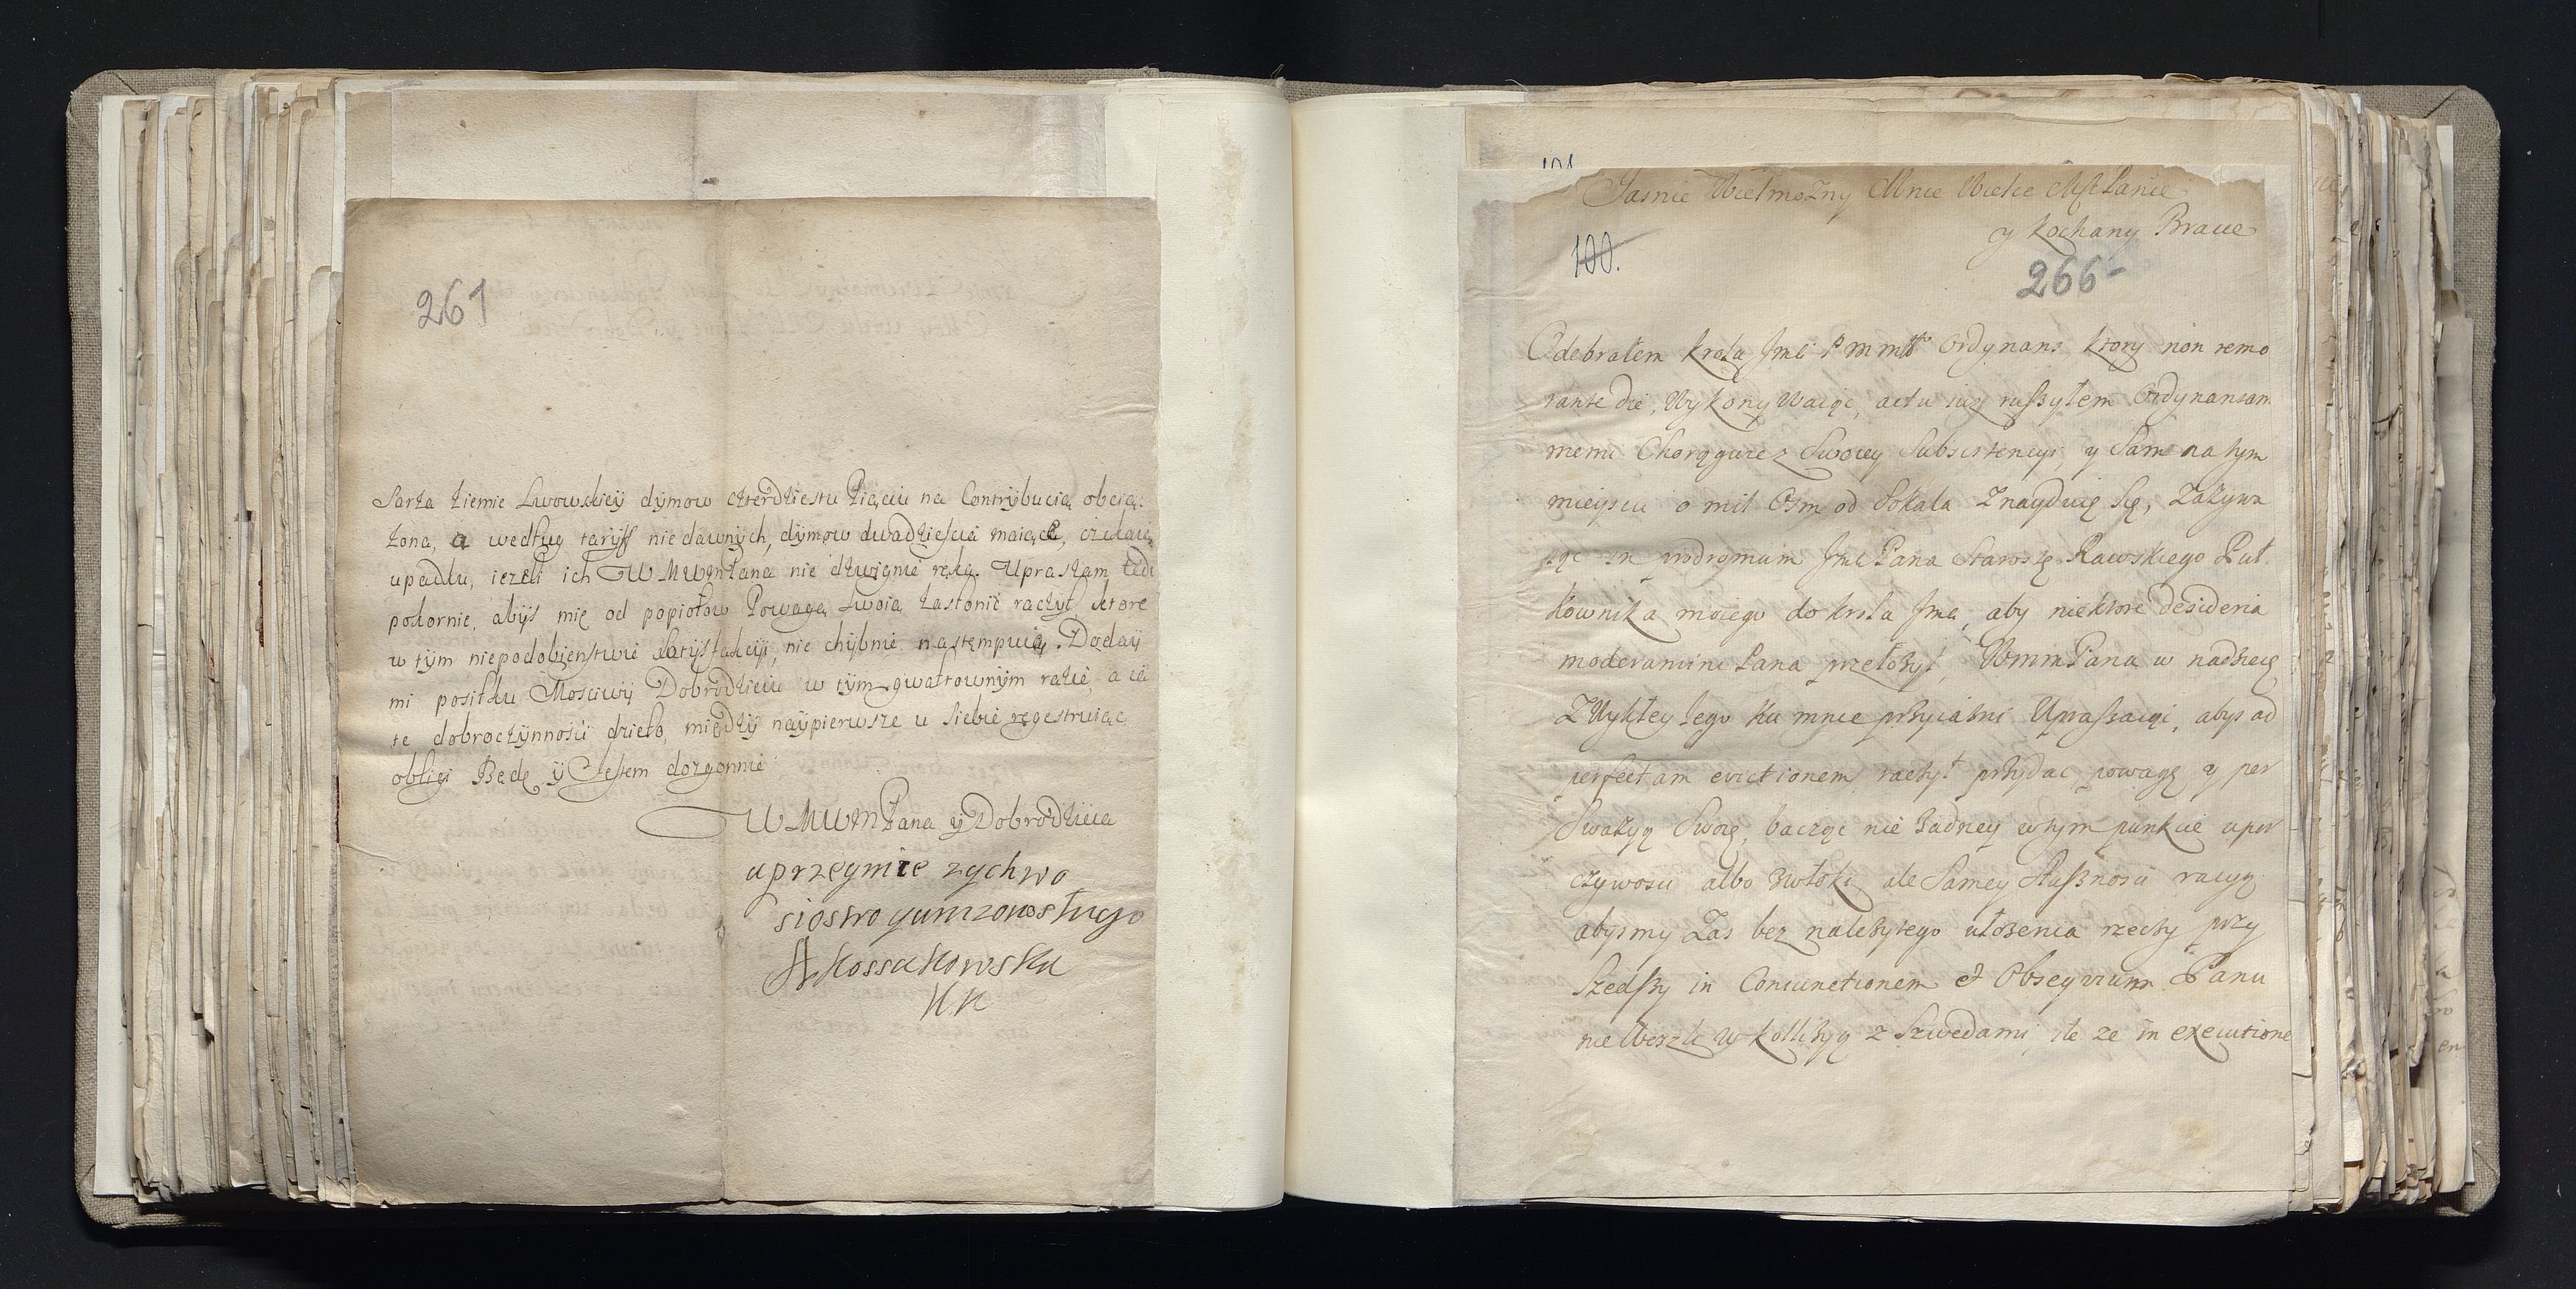 261
Sarża ziemie Lwowskieÿ dÿmow czterdziestu Piąciu na Contrÿbucią obcią:
żona, a według tarÿff niedawnÿch, dÿmow dwadziescia maiące, czekaią
upadku, iezeli ich WMWMPana nie dzwignie ręka. Upraszam tedi
pokornie, abÿs mię od popiołow Powagą swoią zasłonić raczÿł ktore
w tÿm niepodobienstwie satÿsfakcÿi, nie chÿbnie nastempuią. Dodaÿ
mi posiłku Mosciwÿ Dobrodzieiu w tÿm gwałtownÿm razie, a ia
te dobroczÿnnosci dzieło, międzÿ naÿpierwsze u siebie regestruiąc
obligi Będę ÿ Jestem dozgonnie
WMWMPana ÿ Dobrodzieia
uprzeymie zychwo
siostro
AKossakowska
KK
101
Jasnie Wielmozny Mnie Wielce Mśc Panie
y kochany Bracie
100.
266
Odebrałem krola Jmci P m mł Ordynans, ktory non remo
rante die, Wykonywaiąc, actu iuz ruszyłem Ordynansam
memi Chorągwie z Swoiey Subsistencyi, y Sam na tym
mieyscu o mil Osm od Sokala Znayduię Się, Zażywa
iąc in prodromum Jmc Pana Starostę Rawskiego Puł
kownika moiego do krola Jmci, aby niektore desideria
moderamini Pana przełożył, WmmPana w nadzieię
Zwykłey Iego ku mnie przyiazni Upraszaiąc, abys ad
perfectam evictionem raczył przydac powagę y per
Swazyą Swoię, bacząc nie Zadney w tym punkcie upor
czywosci albo zwłoki, ale Samey Słusznosci racyą
abysmy Zas bez nalezytego ułozenia rzeczy przy
Szedszy in Coniunctionem et Obseqvium Panu
nie weszli w kollizyą z Szwedami, ile ze in executione